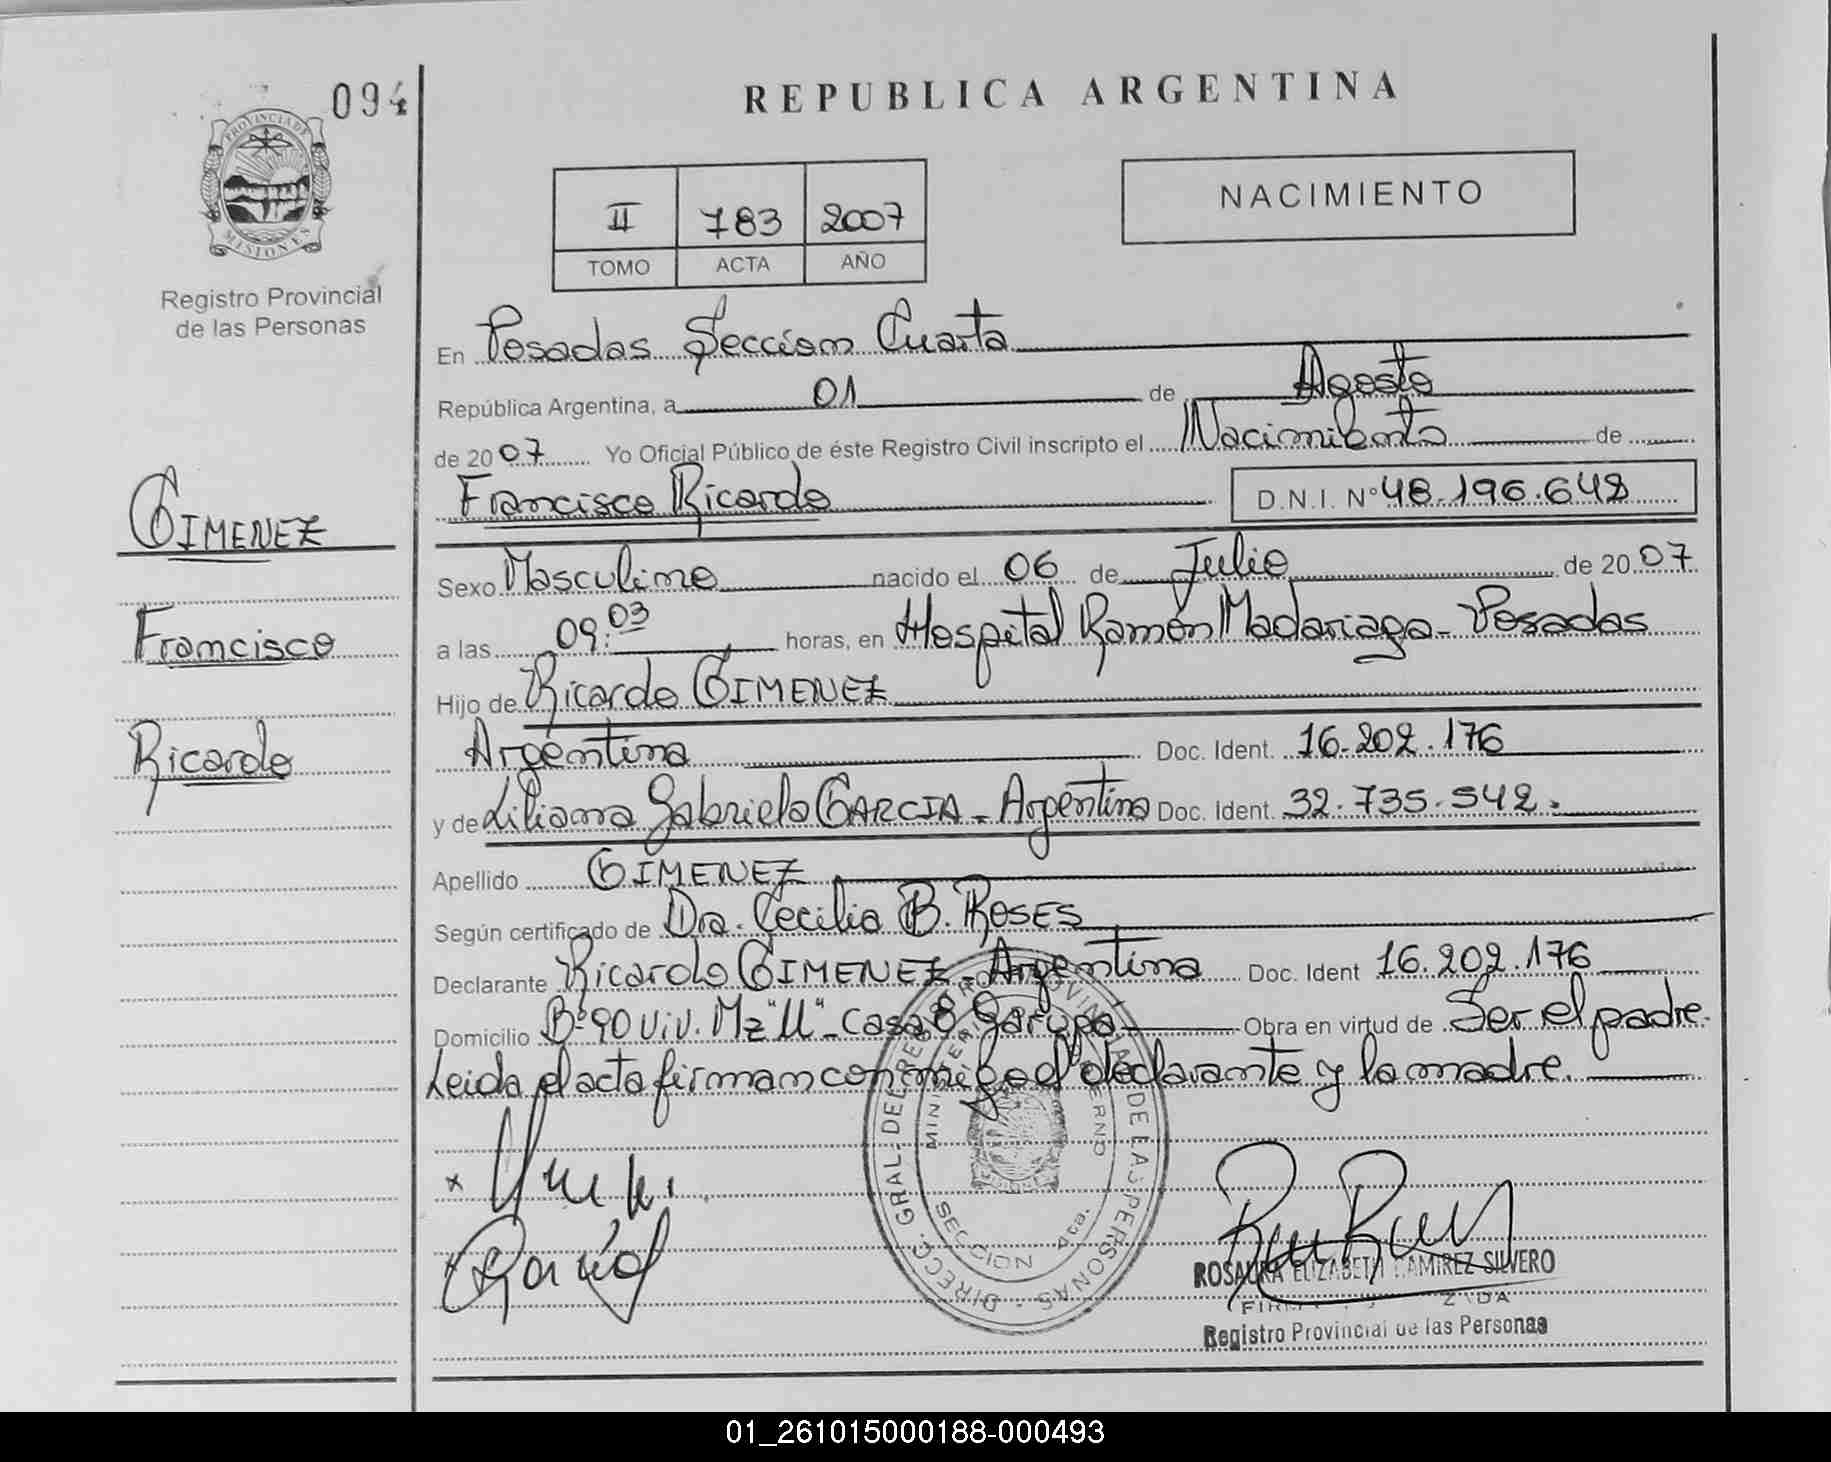 094
PROVINCIA DE
MISIONES
Registro Provincial
de las Personas
REPUBLICA ARGENTINA
II 783 2007
TOMO ACTA AÑO
NACIMIENTO
GIMENEZ
Francisco
Ricardo
En Posadas Seccion Cuarta
República Argentina, a 01 de Agosto
de 2007 Yo Oficial Público de éste Registro Civil inscripto el Nacimiento de
Francisco Ricardo D.N.I. Nº 48.196.648
Sexo Masculino nacido el 06 de Julio de 2007
a las 09:03 horas, en Hospital Ramón Madariaga - Posadas
Hijo de Ricardo GIMENEZ
Argentina Doc. Ident. 16.202.176
y de Liliana Gabriela GARCIA - Argentina Doc. Ident. 32.735.542.
Apellido GIMENEZ
Según certificado de Dra. Cecilia B. ROSES
Declarante Ricardo GIMENEZ - Argentina Doc. Ident 16.202.176
Domicilio Bº 90 Viv. Mz "U" - Casa 8 Garupá Obra en virtud de Ser el padre.
Leida el acta firman conmigo el declarante y la madre.
DIRECC. GRAL. DEL REGISTRO PROVINCIAL DE LAS PERSONAS
SECCION 4ta.
ROSAURA ELIZABETH RAMIREZ SILVERO
Registro Provincial de las Personas
01_261015000188-000493